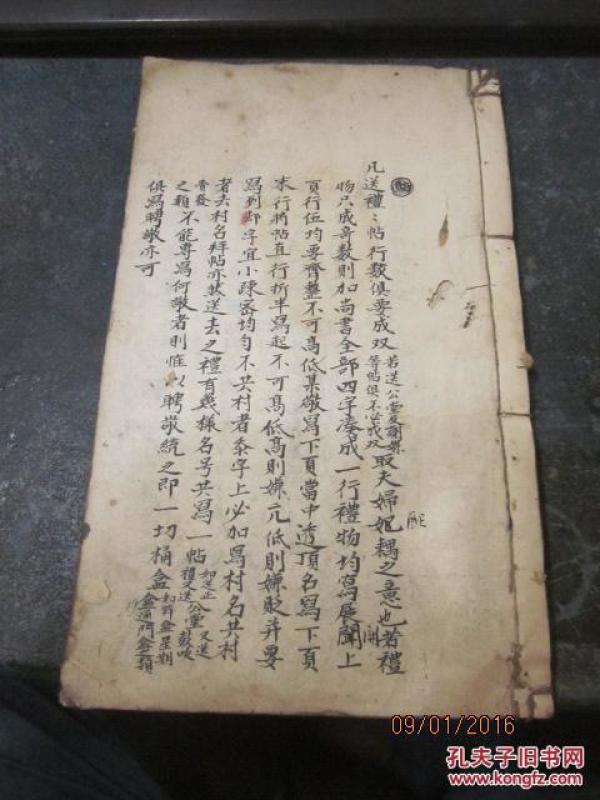 凡送禮〻帖行数俱要成双若送公堂及謝媒等帖俱不必成双取夫婦妃耦之意也若禮
配
物只成奇数則加尚書全部四字湊成一行禮物均寫展開上
開
頁行伍均要齊整不可高低某敬寫下頁當中透頂名寫下頁
末行將帖直行折半寫起不可髙低高則嫌亢低則嫌贬并要
寫列那字宜小疎宻均匀不共村者忝字上必加寫村名共村
者去村名拜帖亦然送去之禮有幾樣名号共寫一帖如送正禮又送公堂又送鼓吹
之類不能專寫何敬者則惟以聘敬統之即一切桶盒如許盒星期盒過門盒類
俱寫聘敬亦可
09/01/2016
孔夫子旧书网
www.kongfz.com